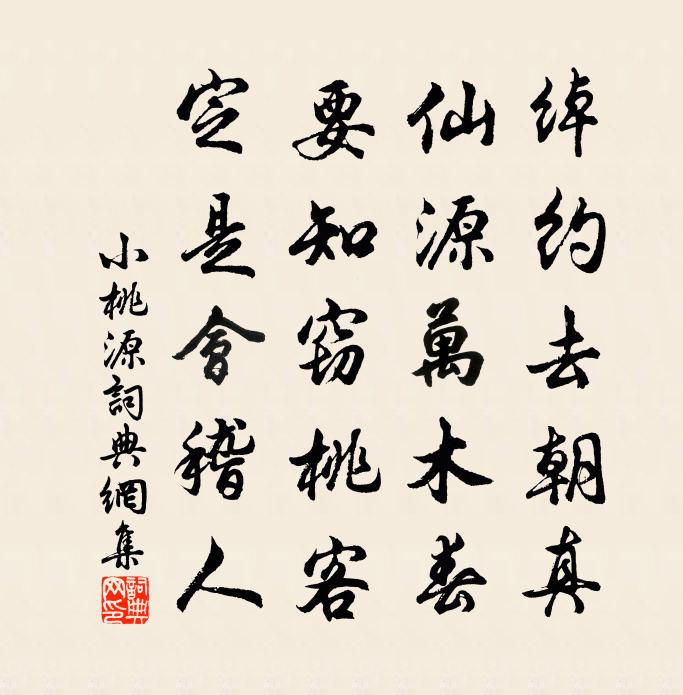 綽約去朝真
仙源萬木春
要知竊桃客
定是會稽人
小桃源詞典網集
詞典網印